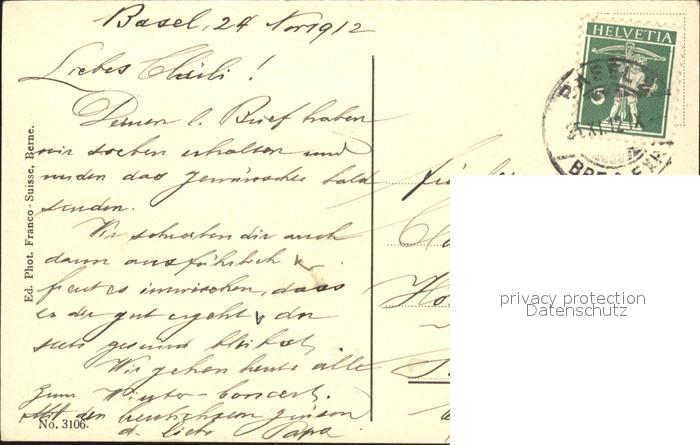 Basel, 24 Nov 1912
Liebes Cläili!
Deinen l. Brief haben
wir soeben erhalten und
werden das Gewünschte bald
senden.
Wir schreiben dir auch
dann ausführlich
freut es inzwischen, dass
es dir gut ergeht & du
stets gesund bleibst.
Wir gehen heute alle
zum Winter-Concert.
Mit den herzlichsten Grüssen
d. lieber Papa
Ed. Phot. Franco-Suisse, Berne.
No. 3106.
HELVETIA
5
BASEL
privacy protection
Datenschutz